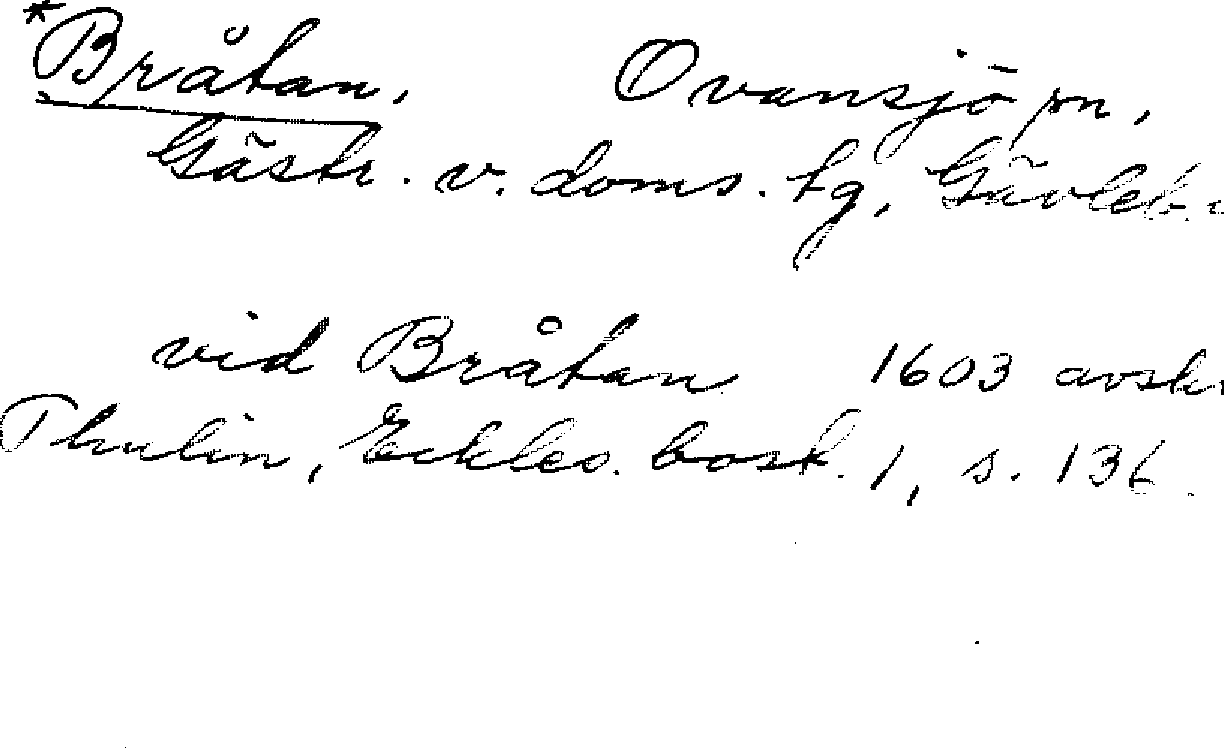 *Bråtan, Ovansjö sn,
Gästr. v. doms. tg, Gävleb.
vid Bråtan 1603 avskr
Thulin, Eckles. bost. 1, s. 136.